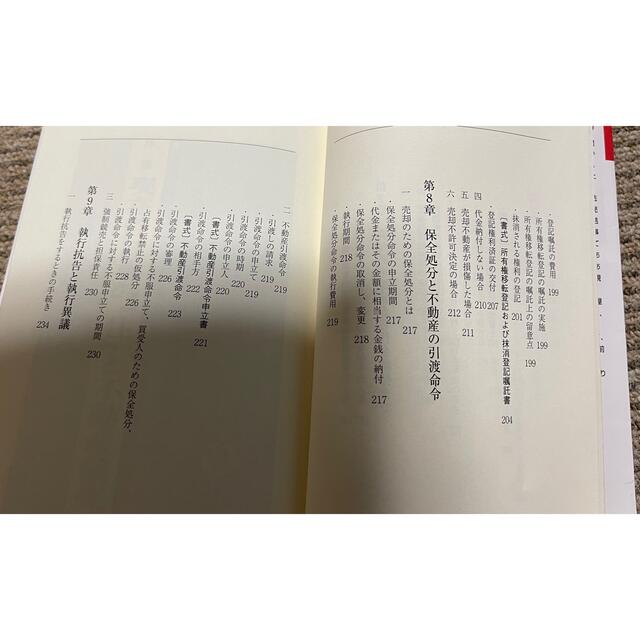 ・登記嘱託の費用 199
・所有権移転登記の嘱託の実施 199
・所有権移転登記の嘱託上の留意点 199
・抹消される権利の登記 201
〔書式〕所有権移転登記および抹消登記嘱託書 204
・登記権利済証の交付 207
四 代金納付しない場合 210
五 売却不動産が損傷した場合 211
六 売却不許可決定の場合 212
第8章 保全処分と不動産の引渡命令
一 売却のための保全処分とは 217
・保全処分命令の申立期間 217
・代金またはその金額に相当する金銭の納付 217
・保全処分命令の取消し、変更 218
・執行期間 218
・保全処分命令の執行費用 219
二 不動産引渡命令 219
・引渡しの請求 219
・引渡命令の申立て 219
・引渡命令の時期 220
・引渡命令の申立人 220
〔書式〕不動産引渡命令申立書 221
・引渡命令の相手方 222
〔書式〕不動産引渡命令 223
・引渡命令の審理 226
・引渡命令に対する不服申立て、買受人のための保全処分、
占有移転禁止の仮処分 226
・引渡命令の執行 228
・引渡命令に対する不服申立ての期間 230
三 強制競売と担保責任 230
第9章 執行抗告と執行異議
一 執行抗告をするときの手続き 234